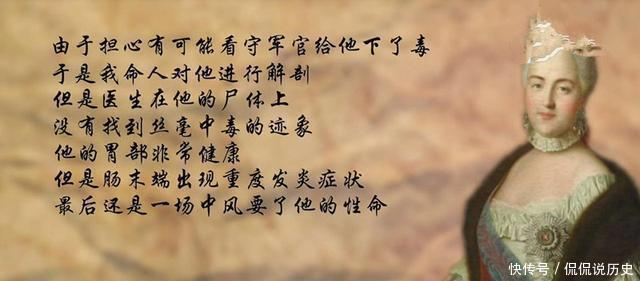 由于担心有可能看守军官给他下了毒
于是我命人对他进行解剖
但是医生在他的尸体上
没有找到丝毫中毒的迹象
他的胃部非常健康
但是肠末端出现重度发炎症状
最后还是一场中风要了他的性命
快传号／侃侃说历史